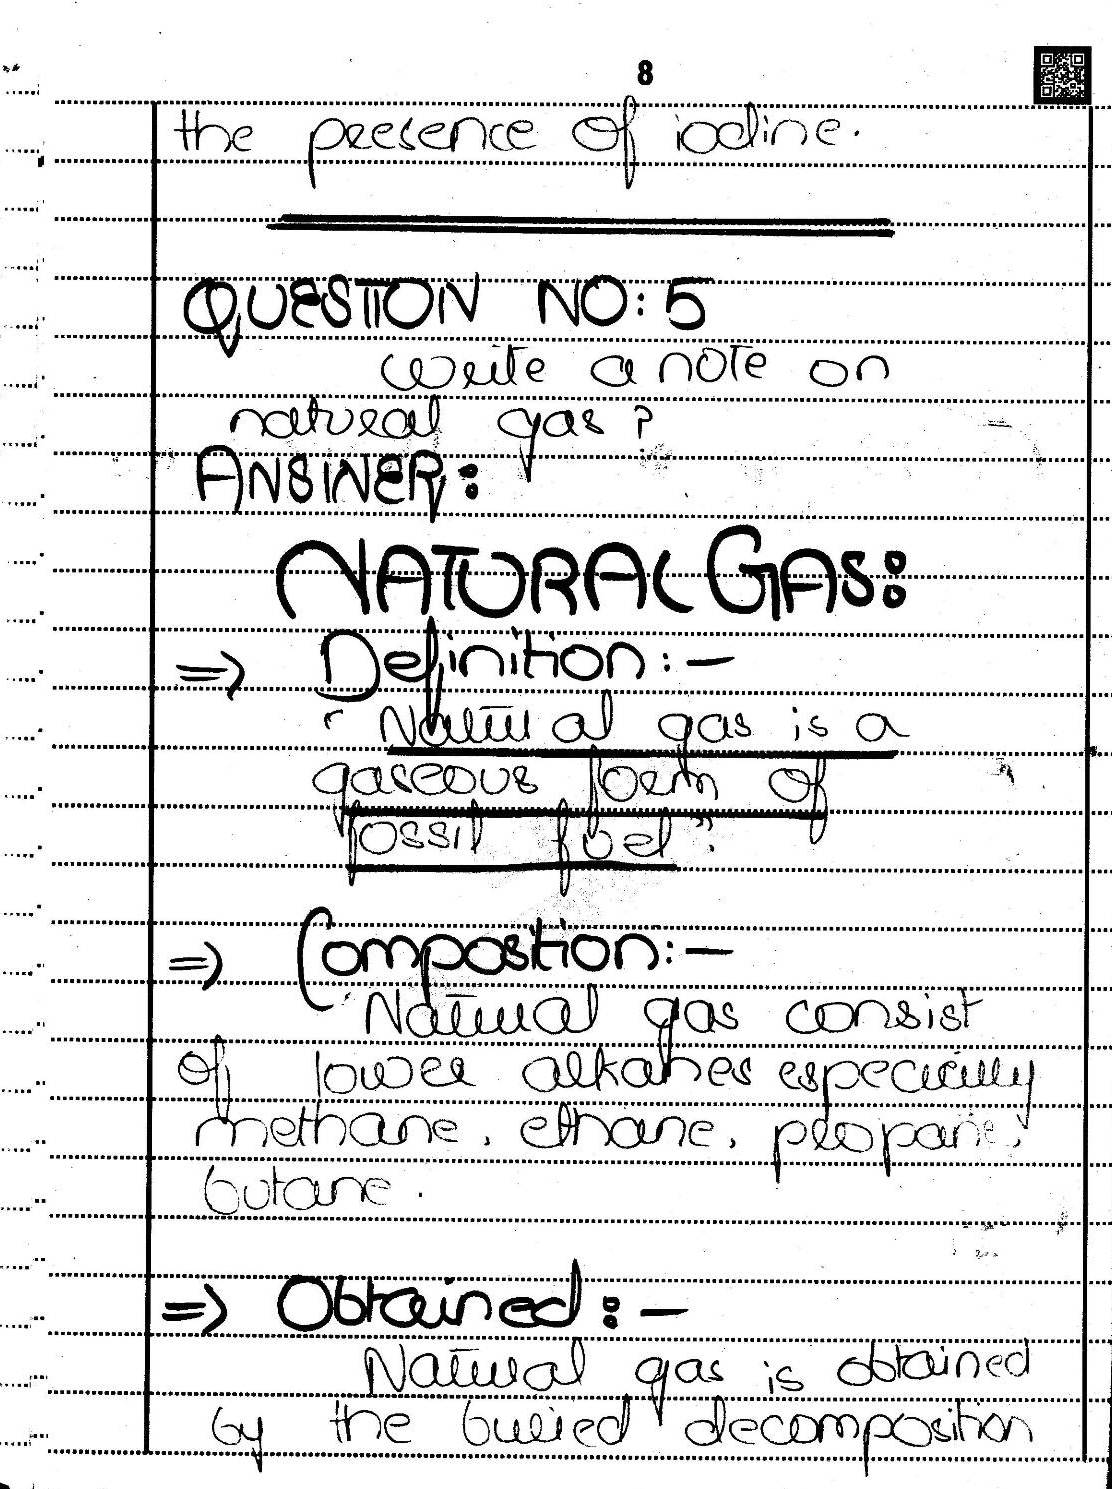 8
the presence of iodine.
QUESTION NO: 5
write a note on
natural gas?
ANSWER:
NATURAL GAS:
=> Definition:-
" Natural gas is a
gaseous form of
fossil fuel".
=> Composition:-
Natural gas consist
of lower alkanes especially
methane, ethane, propane,
butane.
=> Obtained:-
Natural gas is obtained
by the buried decomposition